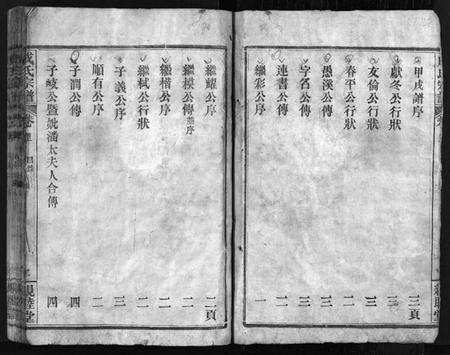 甲戌譜序 三頁
獻冬公行狀 三
友倫公行狀 三
春平公行狀 二
愚溪公傳 一
字名公傳 一
連書公傳 一
繼彩公序 一
繼耀公序 二頁
繼模公傳 二
繼楷公序 一
繼軾公行狀 二
子義公序 三
順有公序 二
子潤公傳 四
子岐公暨 太夫人合傳 四
氏宗譜